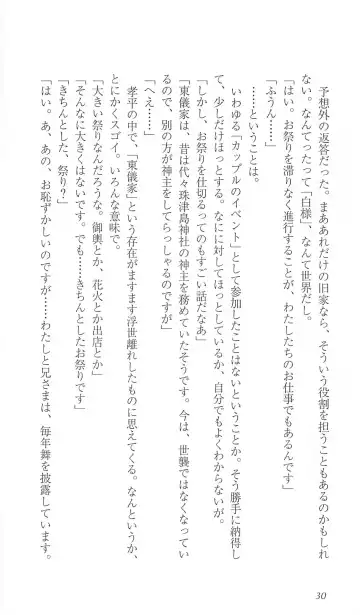 予想外の返答だった。まああれだけの旧家なら、そういう役割を担うこともあるのかもしれ
ない。なんてったって「白様」、なんて世界だし。
「はい。お祭りを滞りなく進行することが、わたしたちのお仕事でもあるんです」
「ふうん……」
……ということは。
いわゆる「カップルのイベント」として参加したことはないということか。そう勝手に納得し
て、少しだけほっとする。なにに対してほっとしているか、自分でもよくわからないが。
「しかし、お祭りを仕切るってのもすごい話だなあ」
「東儀家は、昔は代々珠津島神社の神主を務めていたそうです。今は、世襲ではなくなってい
るので、別の方が神主をしてらっしゃるのですが」
「へえ……」
孝平の中で、「東儀家」という存在がますます浮世離れしたものに思えてくる。なんというか、
とにかくスゴイ。いろんな意味で。
「大きい祭りなんだろうな。御輿とか、花火とか出店とか」
「そんなに大きくはないです。でも……きちんとしたお祭りです」
「きちんとした、祭り?」
「はい。あ、あの、お恥ずかしいのですが……わたしと兄さまは、毎年舞を披露しています。
30